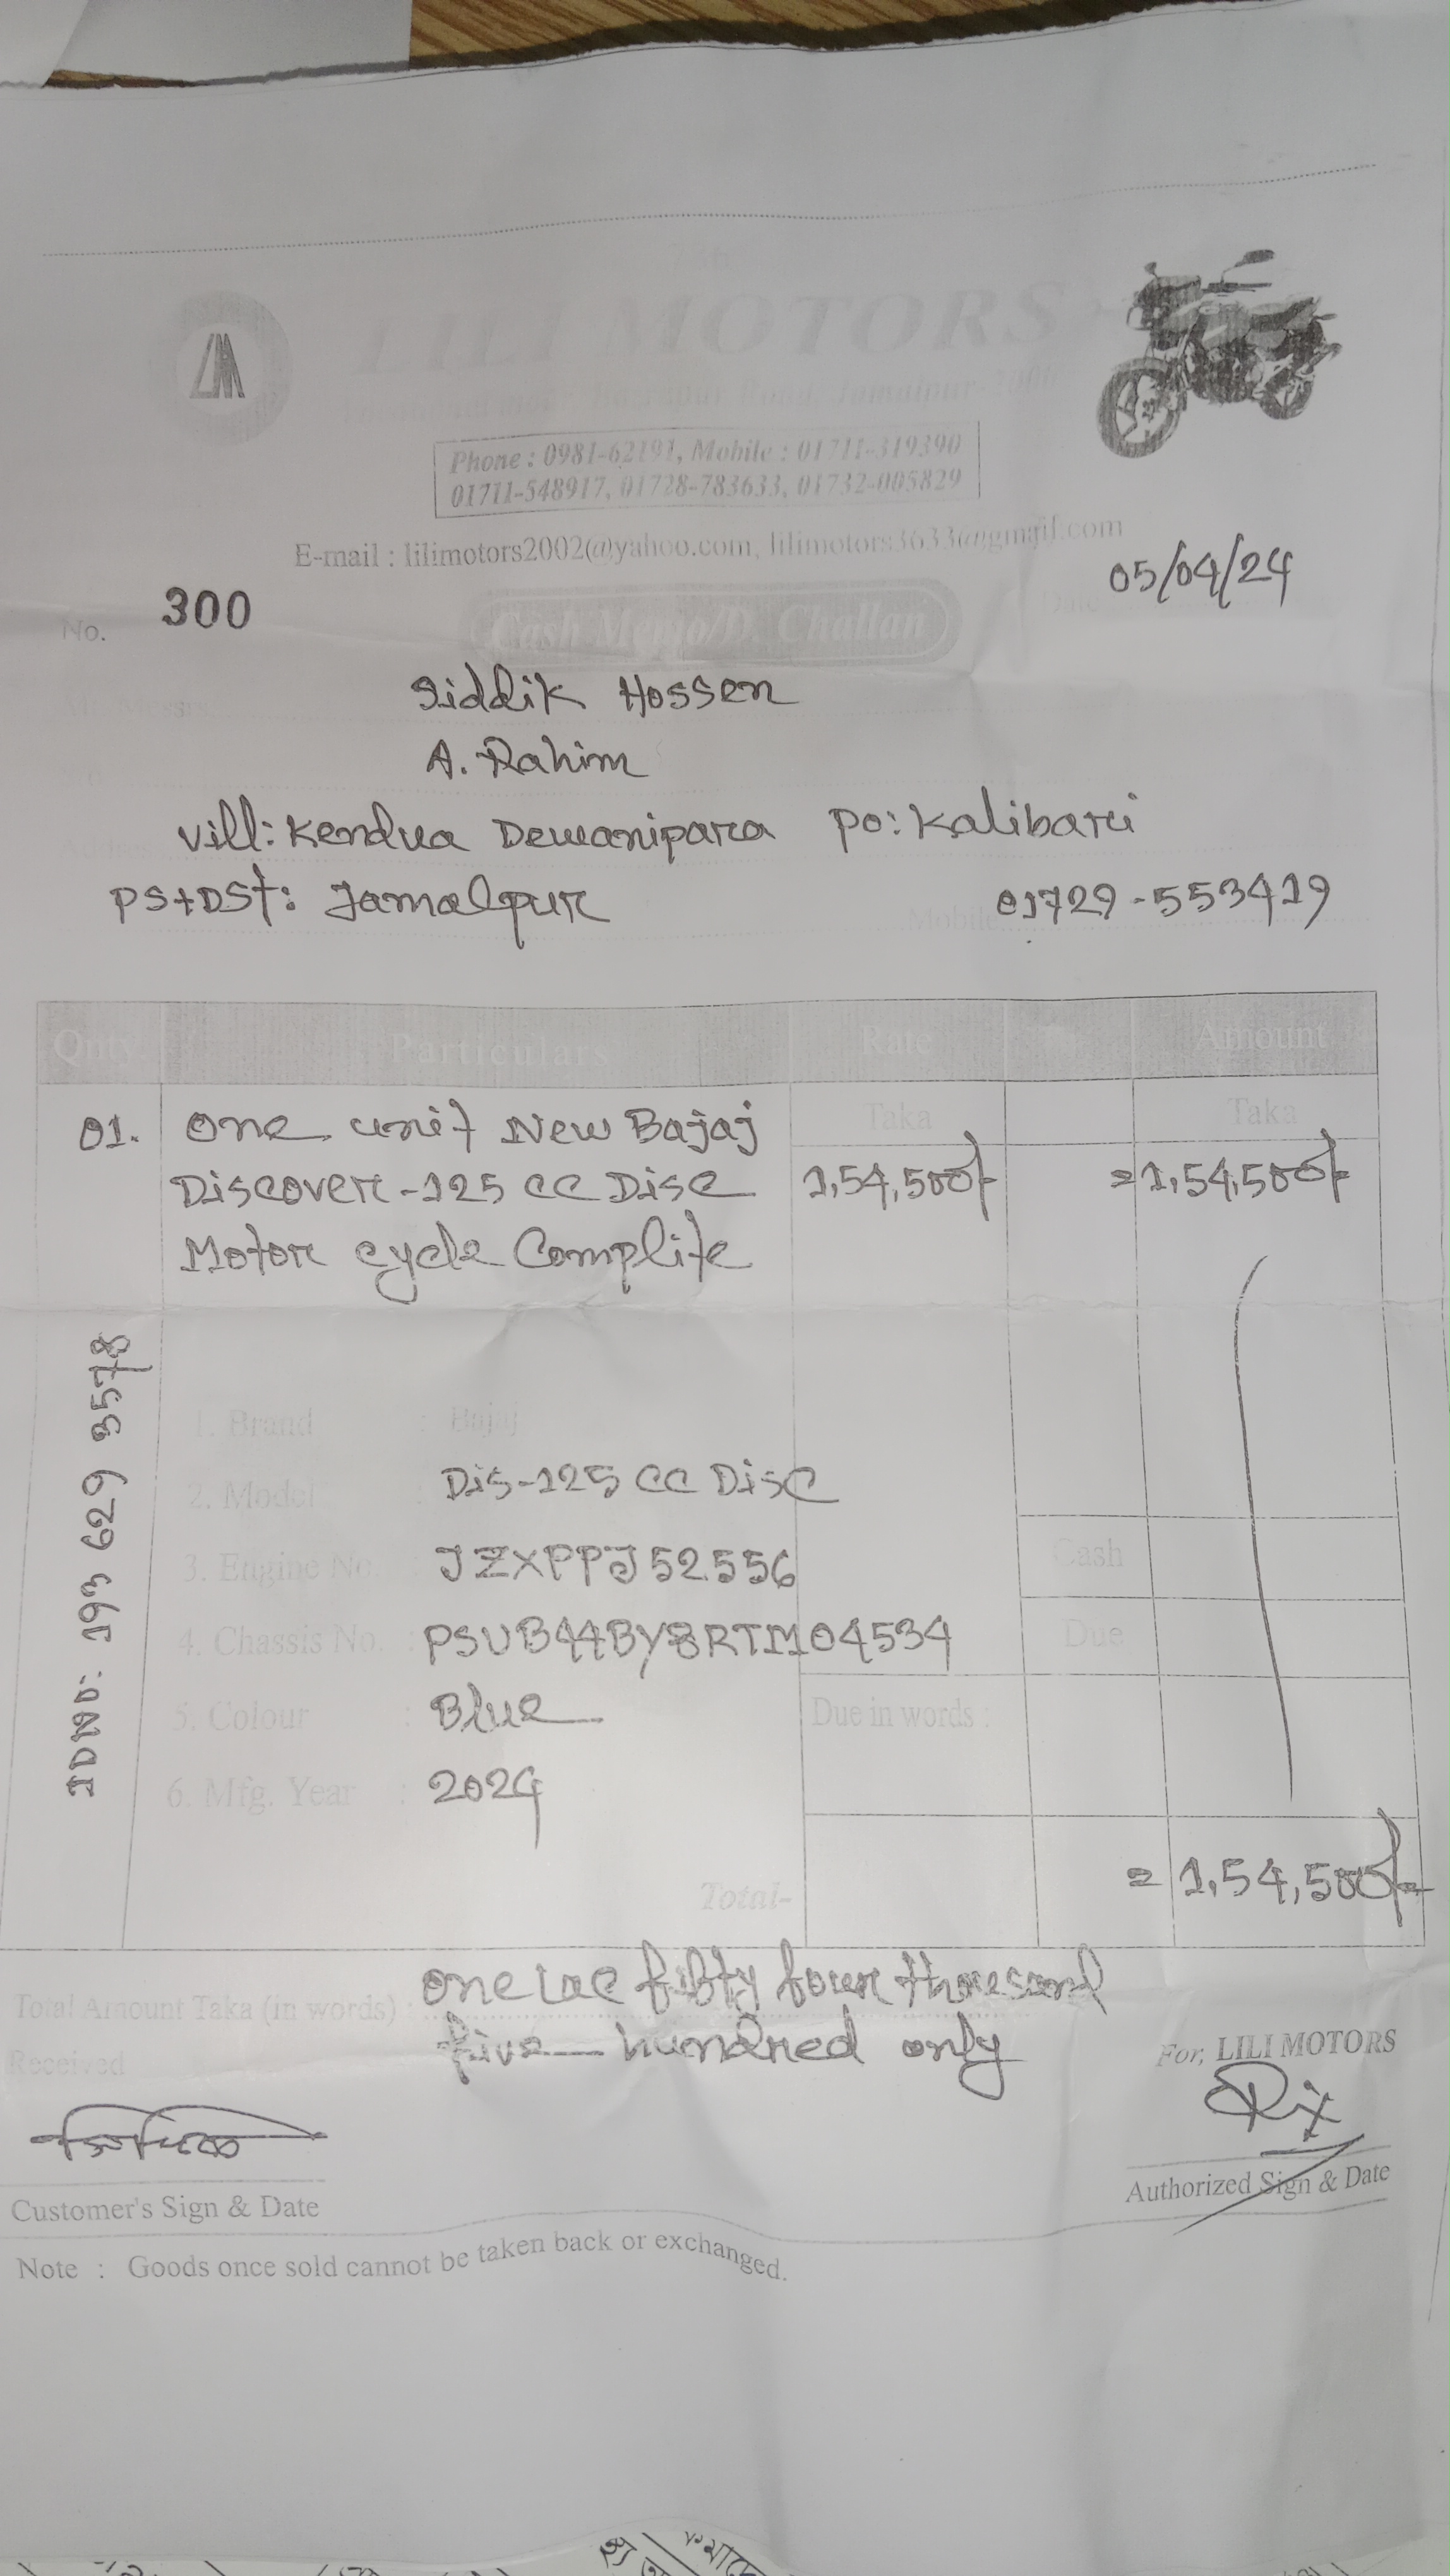 LM
LILI MOTORS
Road, Jamalpur-2000
Phone : 0981-62191, Mobile : 01711-319390
01711-548917, 01728-783633, 01732-005829
E-mail : lilimotors2002@yahoo.com, lilimotors3633@gmail.com
No. 300
Cash Memo/D. Challan
Date 05/04/24
Siddik Hossen
A. Rahim
Address Vill: Kendua Dewanipara Po: Kalibari
PS+DSt: Jamalpur Mobile 01729-553419
Qnty. Particulars Rate Amount
Taka Taka
01. One unit New Bajaj
Discover-125 CC Disc 1,54,500/- =1,54,500/-
Motor cycle Complite
IDNO: 193 629 3578
1. Brand : Bajaj
2. Model Dis-125 CC Disc
3. Engine No. JZXPPJ52556
Cash
4. Chassis No. : PSUB44BY8RTM04534
Due
5. Colour : Blue
Due in words :
6. Mfg. Year : 2024
Total- =1,54,500/-
Total Amount Taka (in words) : one lac fifty four thousand
five hundred only
Received
For, LILI MOTORS
Customer's Sign & Date
Authorized Sign & Date
Note : Goods once sold cannot be taken back or exchanged.